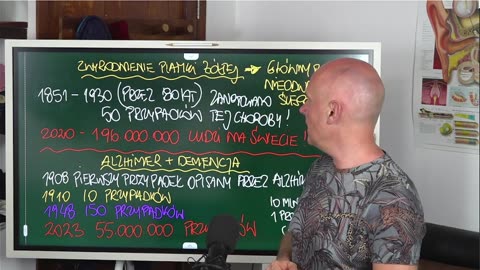 ZWYRODNIENIE PLAMKI ŻÓŁTEJ → GŁÓWNY P
1851 - 1930 (PRZEZ 80 LAT) ZANOTOWANO
50 PRZYPADKÓW TEJ CHOROBY!
2020 - 196 000 000 LUDZI NA ŚWIECIE!
ALZHIMER + DEMENCJA
1908 PIERWSZY PRZYPADEK OPISANY PRZEZ ALZHI
1910 10 PRZYPADKÓW
1948 150 PRZYPADKÓW
2023 55.000 000
10 MIN